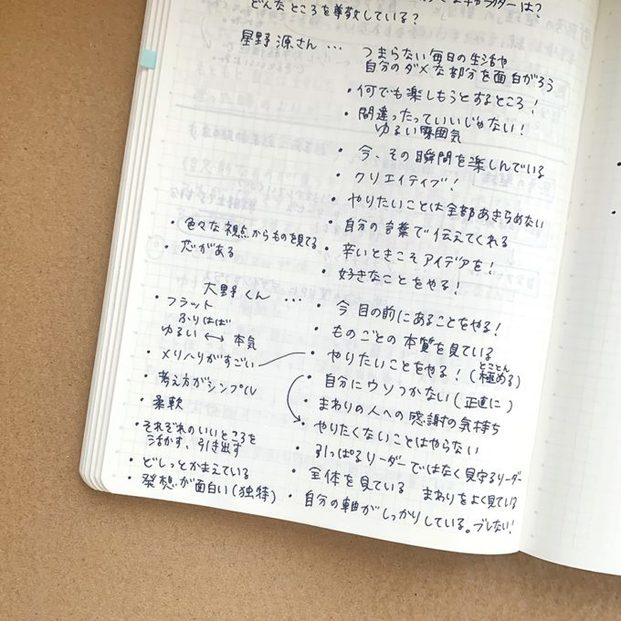 キャラクターは?
どんなところを尊敬している?
星野源さん ・・・ つまらない毎日の生活や
自分のダメな部分を面白がろう
・何でも楽しもうとするところ!
・間違ったっていいじゃない!
ゆるい雰囲気
・今、その瞬間を楽しんでいる
・クリエイティブ!
・やりたいことは全部あきらめない
・自分の言葉で伝えてくれる
・辛いときこそアイデアを!
・好きなことをやる!
・色々な視点からものを見てる
・芯がある
大野くん ・・・
・今目の前にあることをやる!
・ものごとの本質を見ている
・やりたいことをやる!(極める)
とことん
・自分にウソつかない(正直に)
・まわりの人への感謝の気持ち
・やりたくないことはやらない
・引っぱるリーダーではなく見守るリーダー
・全体を見ている まわりをよく見ている
・自分の軸がしっかりしている。ブレない!
・フラット
ふりはば
ゆるい ↔ 本気
・メリハリがすごい
・考え方がシンプル
・柔軟
・それぞれのいいところを
活かす、引き出す
・どしっとかまえている
・発想が面白い(独特)